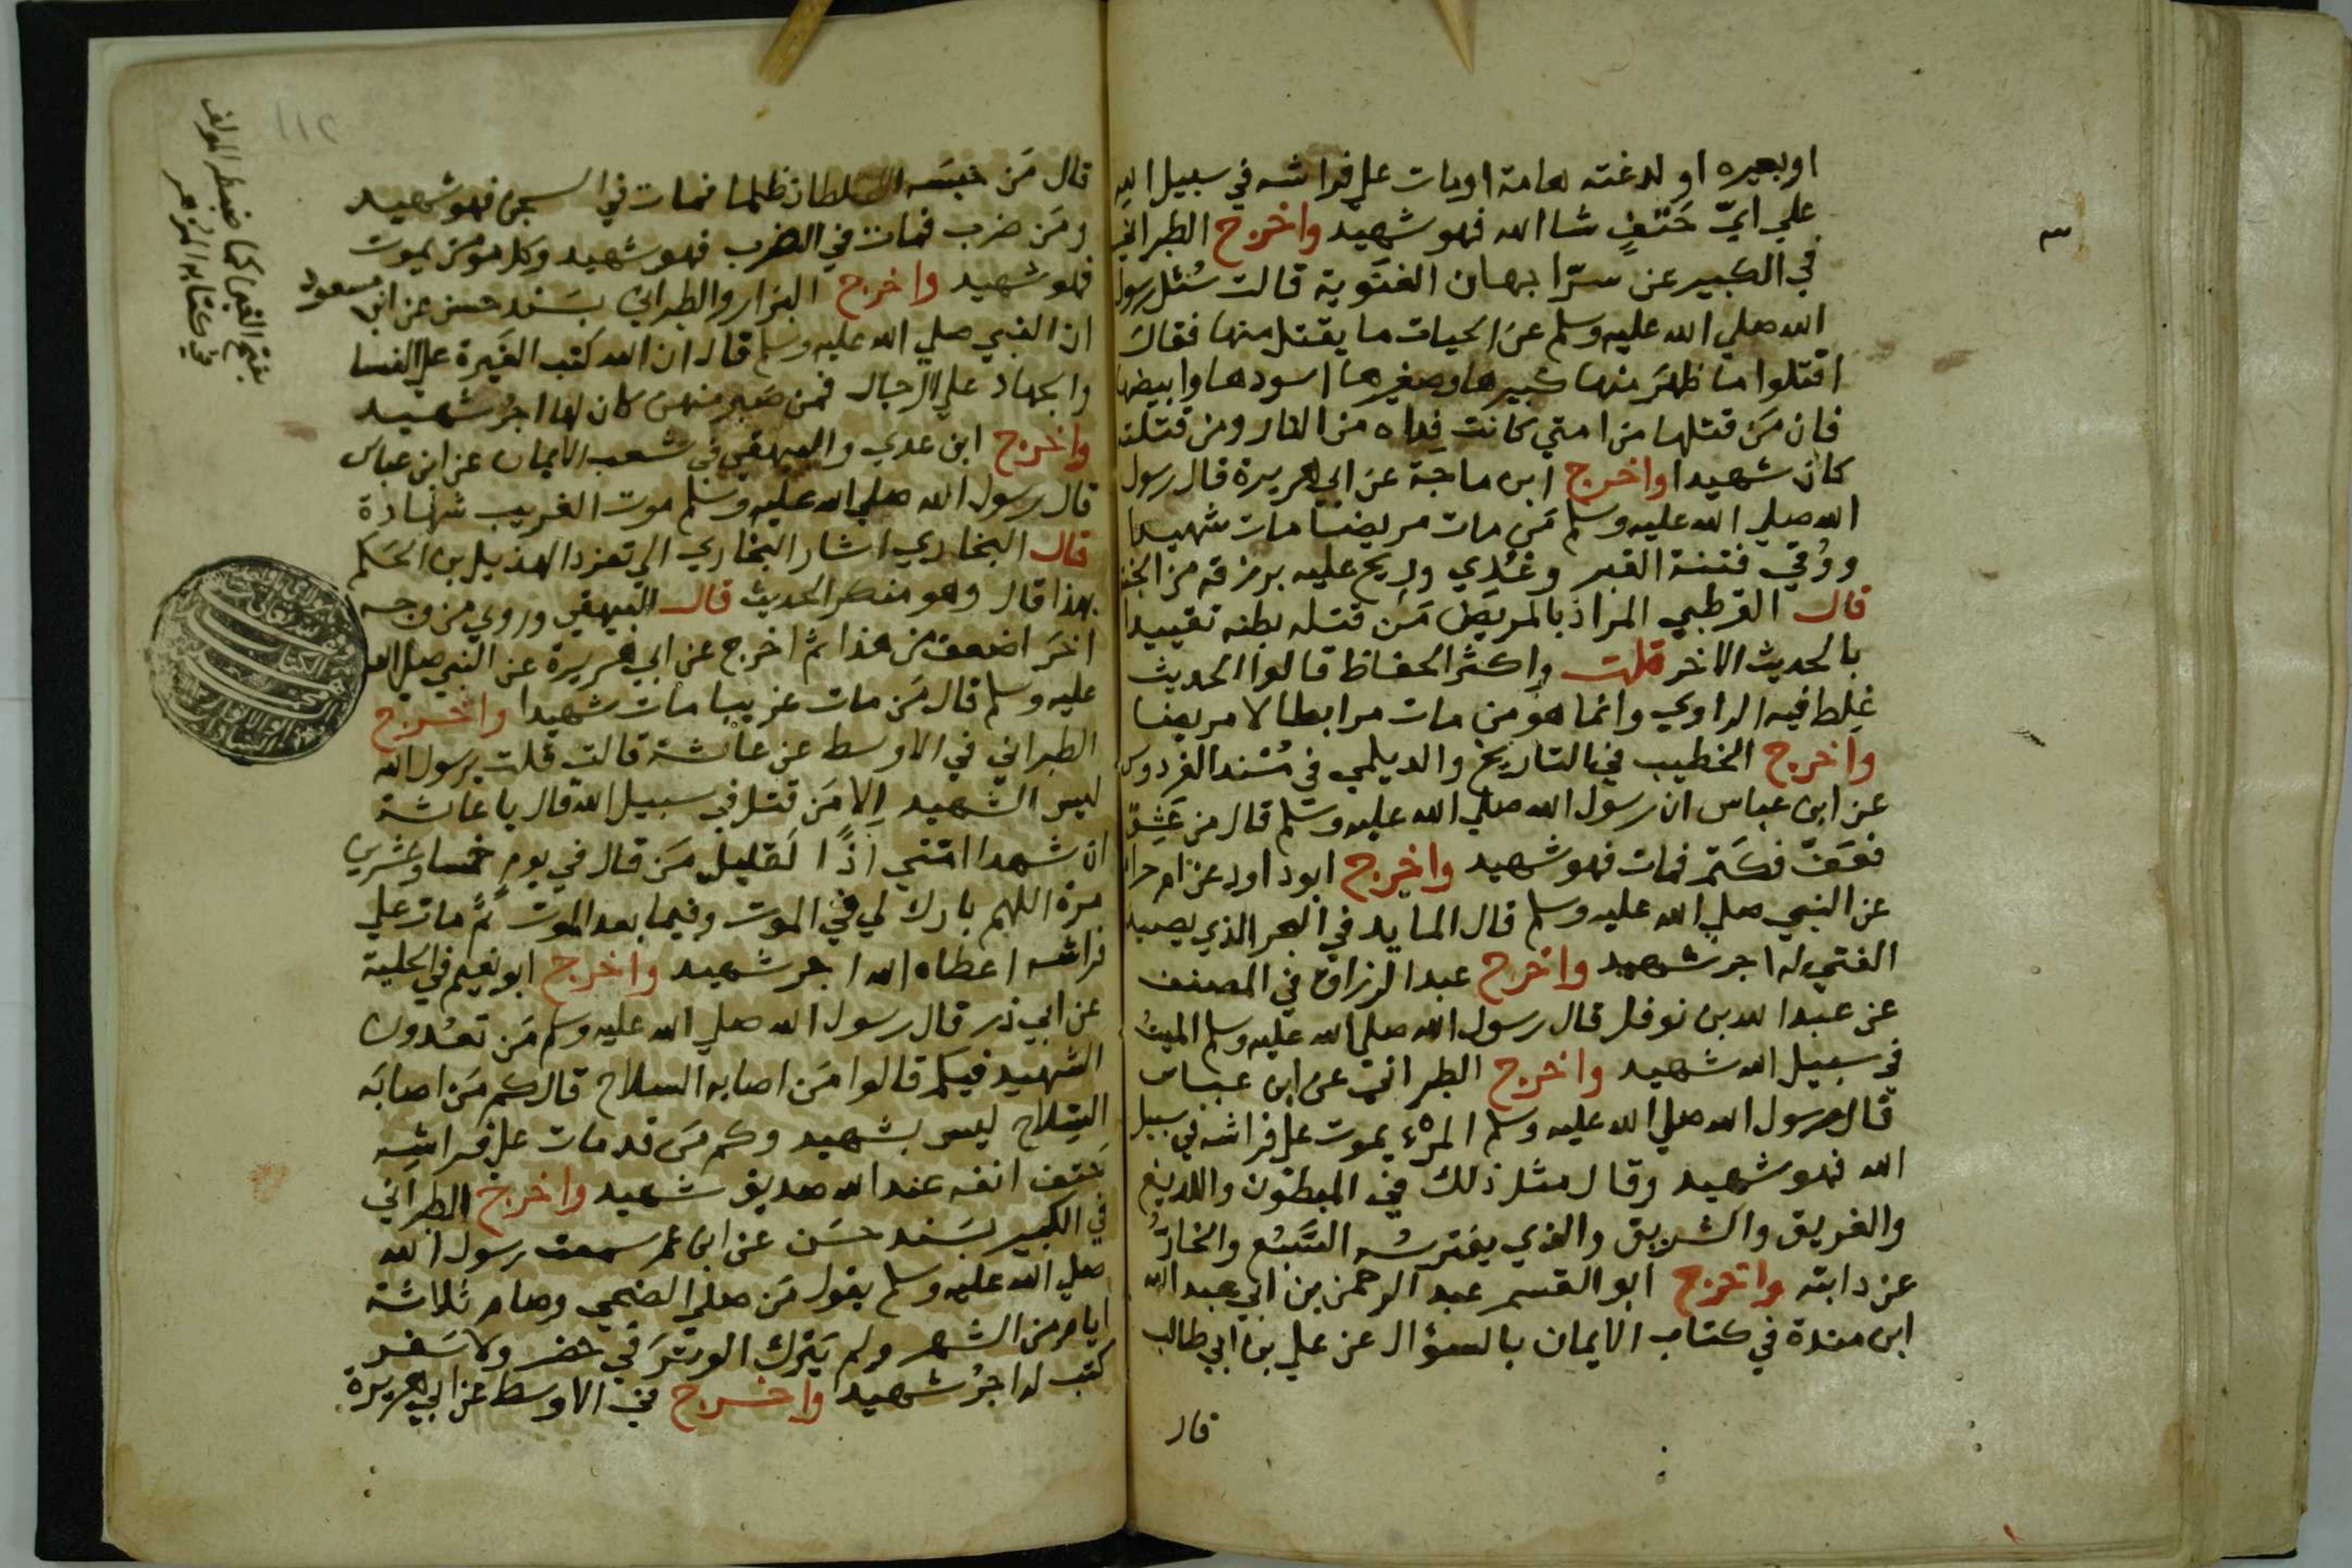 او بعيره او لدغته هامة او مات على فراشه في سبيل الله
علي ايّ حَتفٍ شا الله فهو شهيد واخرج الطبراني
في الكبير عن سرّا بهان الغنوية قالت سُئل رسول
الله صلي الله عليه وسلم عن الحيات ما يقتل منها فقال
اقتلوا ما ظهَر منها كبيرها وصغيرها اسودها وابيضها
فان مَن قتلها من امتي كانت فِداه من النار ومن قتلته
كان شهيدا واخرج ابن ماجَة عن ابي هريرة قال رسول
الله صلي الله عليه وسلم مَن مات مريضا مات شهيدا
ووُقي فتنة القبر وغُدي وريح عليه برزقه من الجنة
قال القرطبي المراد بالمريض مَن قتله بطنه تقييدا
بالحديث الاخر قلت واكثر الحفاظ قالوا الحديث
غلِط فيه الراوي وانما هو من مات مرابطا لا مريضا
واخرج الخطيب في التاريخ والديلمي في مُسند الفردوس
عن ابن عباس ان رسول الله صلي الله عليه وسلم قال من عَشِقَ
فعَفّ فكتَم فمات فهو شهيد واخرج ابو داود عن ام حرام
عن النبي صلي الله عليه وسلم قال المايد في البحر الذي يصيبه
القئ له اجر شهيد واخرج عبد الرزاق في المصنف
عن عبد الله بن نوفل قال رسول الله صلي الله عليه وسلم الميتُ
في سبيل الله شهيد واخرج الطبراني عن ابن عباس
قال رسول الله صلي الله عليه وسلم المرْء يموت علي فراشه في سبيل
الله فهو شهيد وقال مثل ذلك في المبطون واللديغ
والغريق والشريق والذي يفترسُه السَّبُع والخارُّ
عن دابته واخرج ابو القسم عبد الرحمن بن ابي عبد الله
ابن مندة في كتاب الايمان بالسؤال عن علي بن ابي طالب
قال
قال مَن حبَسَه السلطان ظلما فمات في السجن فهو شهيد
ومَن ضرب فمات في الضرب فهو شهيد وكل مومن يموت
فهو شهيد واخرج البزار والطبراني بسَند حسن عن ابن مسعود
ان النبي صلي الله عليه وسلم قال ان الله كتب الغَيرة علي النسا
والجهاد علي الرجال فمن صَبر منهن كان لها اجرُ شهيد
واخرج ابن عدي والبيهقي في شعب الايمان عن ابن عباس
قال رسول الله صلي الله عليه وسلم موت الغريب شهادة
قال البخاري اشار البخاري الي تفرد الهذيل بن الحَكم
بهذا قال وهو منكر الحديث قال البيهقي وروي من وجه
اخَر اضعف من هذا ثم اخرج عن ابي هريرة عن النبي صلي الله
عليه وسلم قال مَن مات غريبا مات شهيدا واخرج
الطبراني في الاوسط عن عائشة قالت قلت يرسول الله
ليس الشهيد إلا مَن قتل في سبيل الله قال يا عائشة
ان شهدا امّتي اذًا لَقليل مَن قال في يوم خمسا وعشرين
مرة اللهم بارك لي في الموت وفيما بعد الموت ثمّ مات علي
فراشه اعطاه الله اجر شهيد واخرج ابو نعيم في الحلية
عن ابي ذر قال رسول الله صلي الله عليه وسلم مَن تعُدون
الشهيد فيكم قالوا مَن اصابه السلاح قال كم مَن اصابَه
السِلاح ليس بشهيد وكم مَن قد مات علي فراشِه
حَتف انفه عند الله صديق شهيد واخرج الطبراني
في الكبير بسَند حسَن عن ابن عمر سمعت رسول الله
صلي الله عليه وسلم يقول مَن صلي الضحي وصام ثلاثة
ايام من الشهر ولم يَترك الوترَ في حضر ولا سَفر
كتب له اجرُ شهيد واخرج في الاوسط عن ابي هريرة
بفتح الغين كما ضبطه المولف